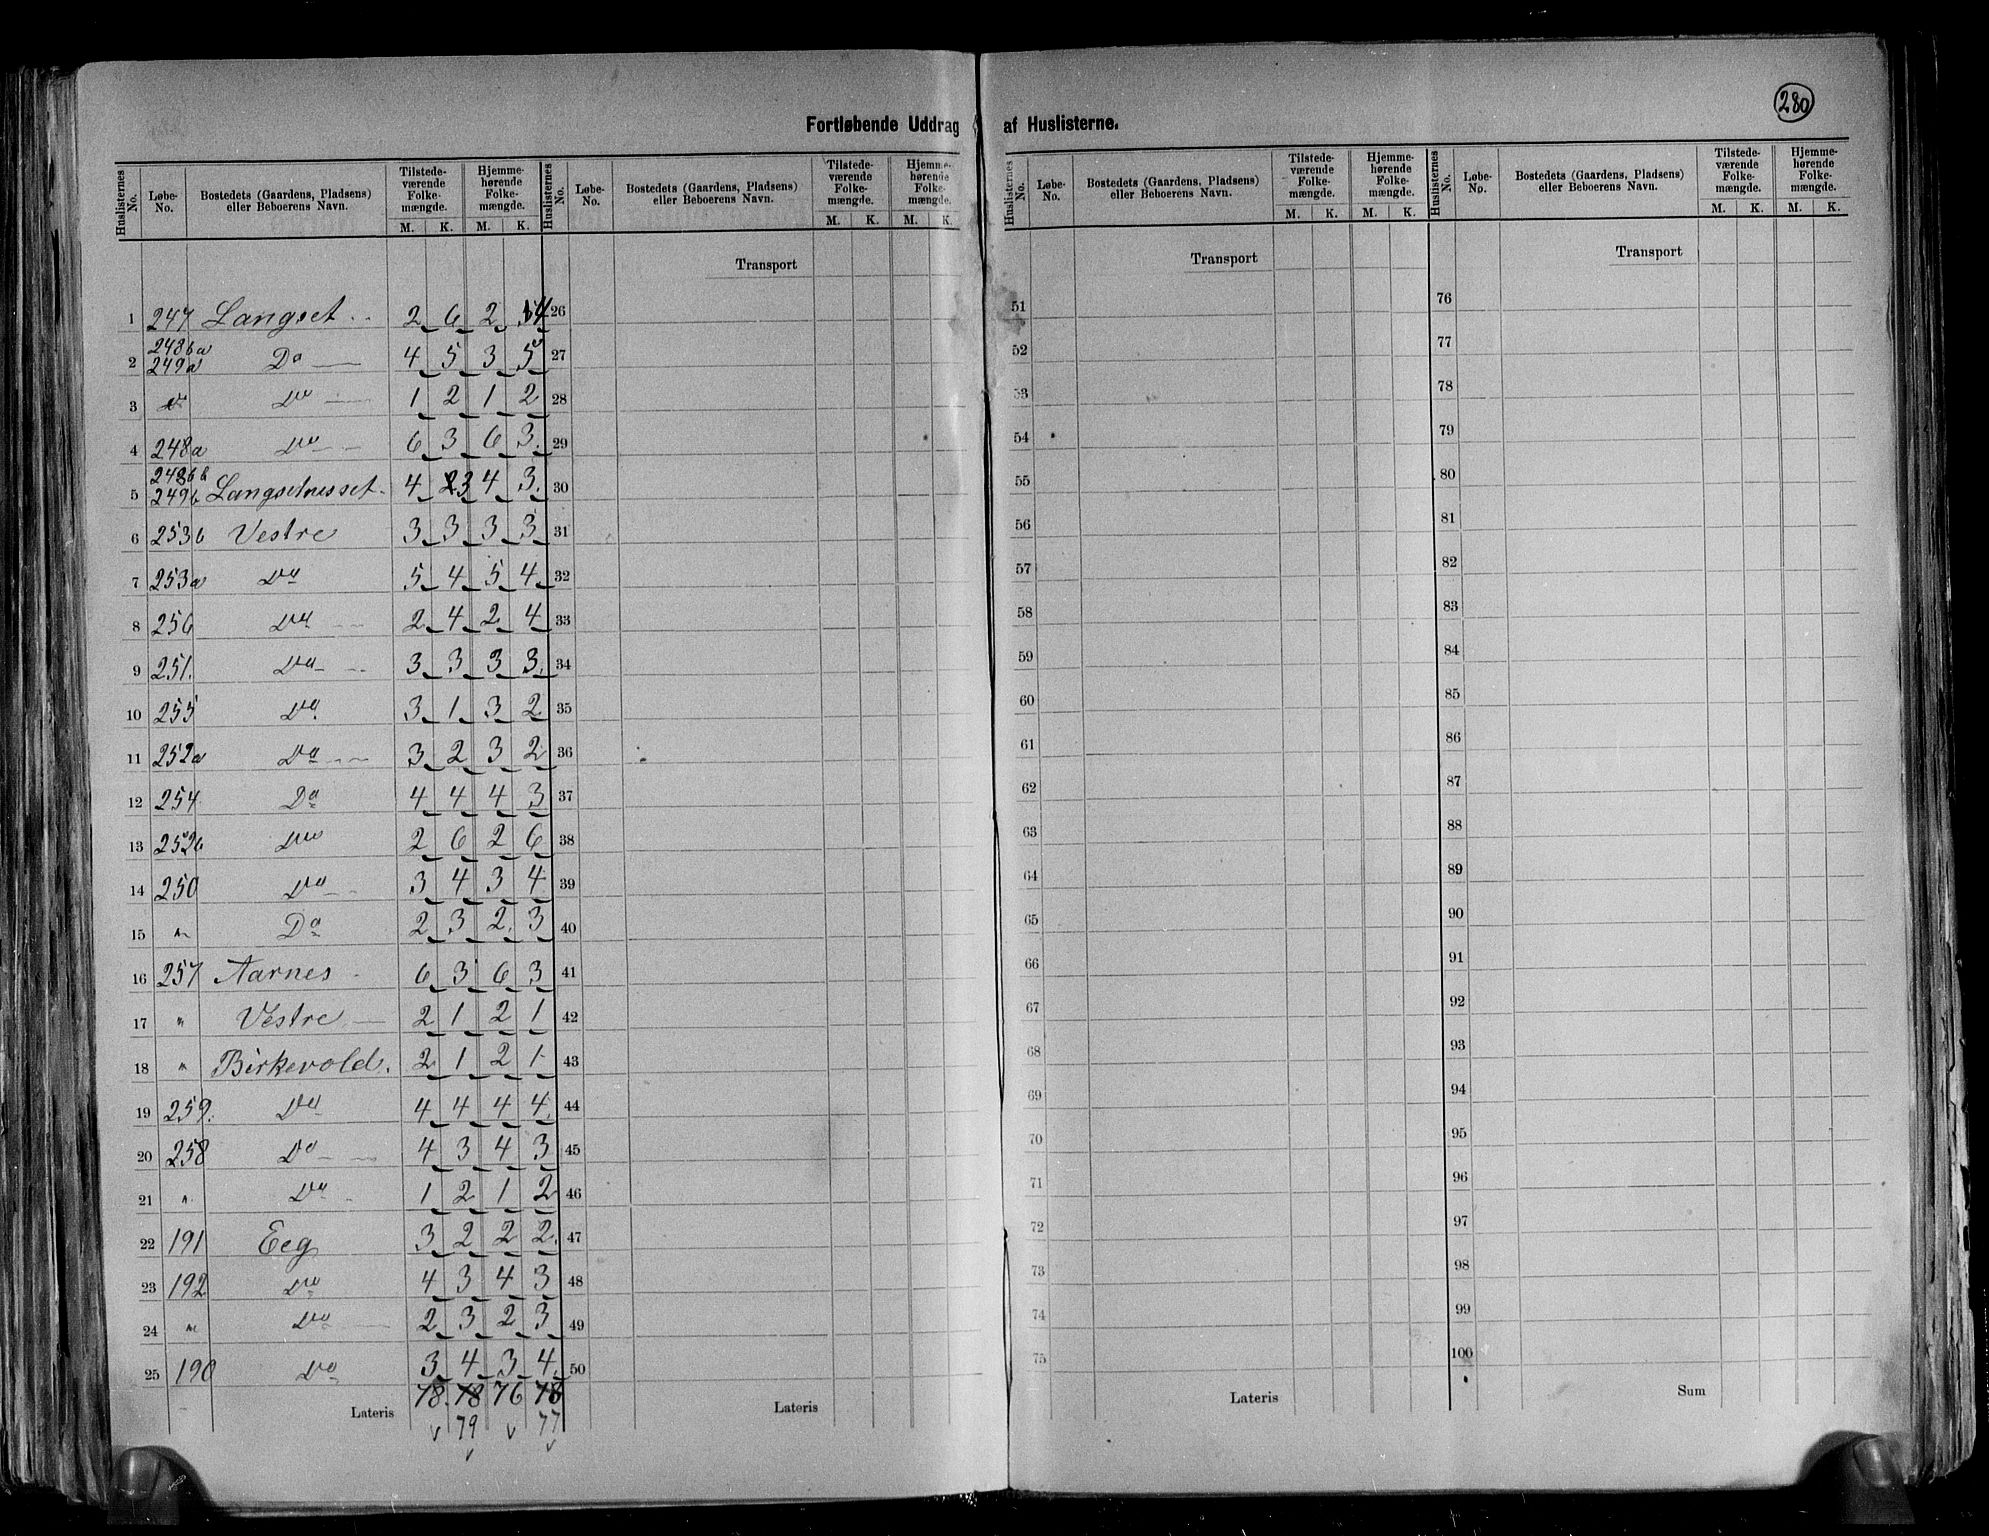 280
Fortløbende Uddrag af Huslisterne.
Huslisternes No. | Løbe-No. | Bostedets (Gaardens, Pladsens) eller Beboerens Navn. | Tilstedeværende Folkemængde. M. K. | Hjemmehørende Folkemængde. M. K.
1 247 Langset 2 6 2 4
2 248ba 249a Do 4 5 3 5
3 Do 1 2 1 2
4 248a Do 6 3 6 3
5 248bb 249b Langsethusset 4 3 4 3
6 253b Vestre 3 3 3 3
7 253a Do 5 4 5 4
8 256 Do 2 4 2 4
9 251 Do 3 3 3 3
10 255 Do 3 1 3 2
11 252a Do 3 2 3 2
12 254 Do 4 4 4 3
13 252b Do 2 6 2 6
14 250 Do 3 4 3 4
15 " Do 2 3 2 3
16 257 Aarnes 6 3 6 3
17 " Vestre 2 1 2 1
18 " Birkevold 2 1 2 1
19 259 Do 4 4 4 4
20 258 Do 4 3 4 3
21 " Do 1 2 1 2
22 191 Eeg 3 2 2 2
23 192 Do 4 3 4 3
24 " Do 2 3 2 3
25 190 Do 3 4 3 4
Lateris 78 78 76 78
v 79 v 77
v v
Huslisternes No. | Løbe-No. | Bostedets (Gaardens, Pladsens) eller Beboerens Navn. | Tilstedeværende Folkemængde. M. K. | Hjemmehørende Folkemængde. M. K.
Transport
26
27
28
29
30
31
32
33
34
35
36
37
38
39
40
41
42
43
44
45
46
47
48
49
50
Lateris
Huslisternes No. | Løbe-No. | Bostedets (Gaardens, Pladsens) eller Beboerens Navn. | Tilstedeværende Folkemængde. M. K. | Hjemmehørende Folkemængde. M. K.
Transport
51
52
53
54
55
56
57
58
59
60
61
62
63
64
65
66
67
68
69
70
71
72
73
74
75
Lateris
Huslisternes No. | Løbe-No. | Bostedets (Gaardens, Pladsens) eller Beboerens Navn. | Tilstedeværende Folkemængde. M. K. | Hjemmehørende Folkemængde. M. K.
Transport
76
77
78
79
80
81
82
83
84
85
86
87
88
89
90
91
92
93
94
95
96
97
98
99
100
Sum